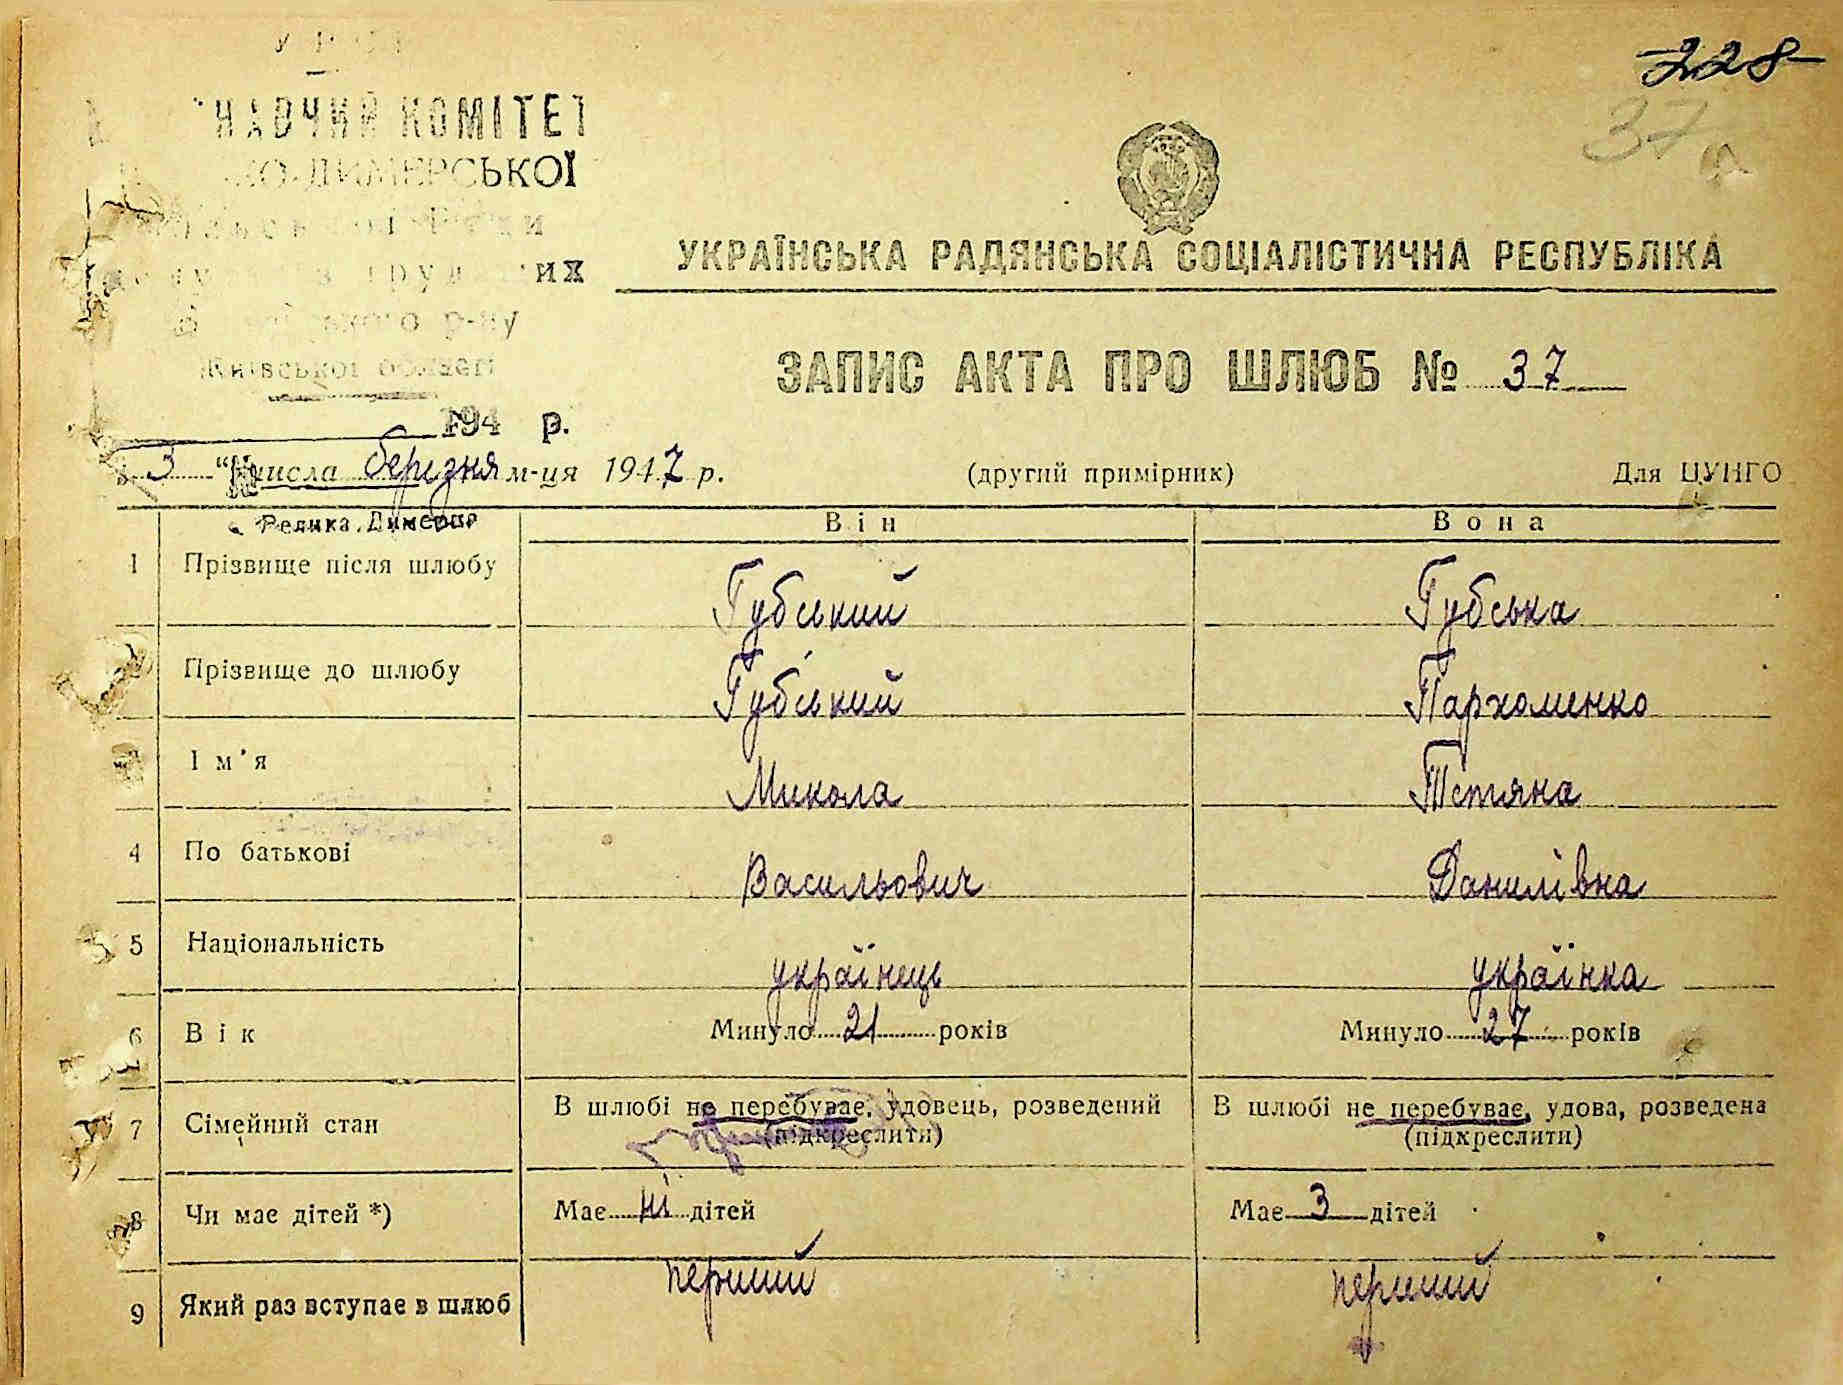 228
37
КОМІТЕТ
ДИМЕРСЬКОЇ
р-ну
Київської області
194 р.
УКРАЇНСЬКА РАДЯНСЬКА СОЦІАЛІСТИЧНА РЕСПУБЛІКА
ЗАПИС АКТА ПРО ШЛЮБ № 37
3 " числа березня м-ця 1947 р. (другий примірник) Для ЦУНГО
Велика Димерка
Він Вона
1 Прізвище після шлюбу Губський Губська
Прізвище до шлюбу Губський Пархоменко
Ім'я Микола Тетяна
4 По батькові Васильович Данилівна
5 Національність українець українка
6 Вік Минуло 21 років Минуло 27 років
7 Сімейний стан В шлюбі не перебуває, удовець, розведений (підкреслити) В шлюбі не перебуває, удова, розведена (підкреслити)
8 Чи має дітей *) Має ні дітей Має 3 дітей
9 Який раз вступає в шлюб перший перший